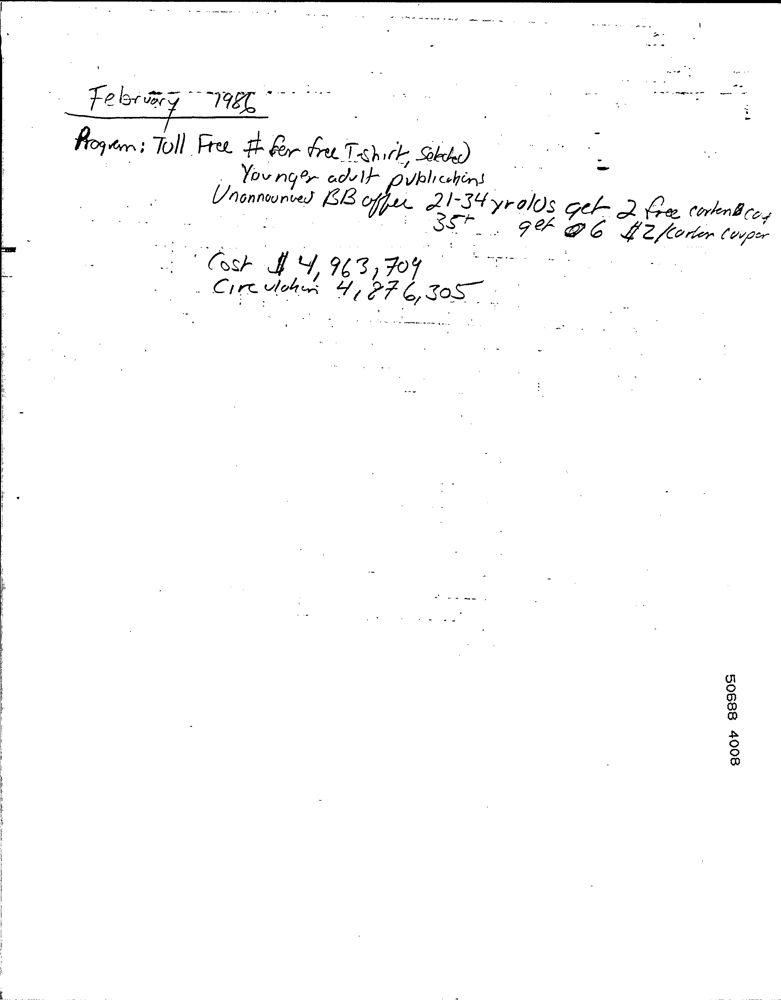 February 1986
Program: Toll Free # for free T-shirt, Selected
Younger adult publications
Unannounced BB offer 21-34 yr olds get 2 free carton
35+ get 6 $2/carton coupon
Cost $4,963,709
Circulation 4,876,305
50688 4008